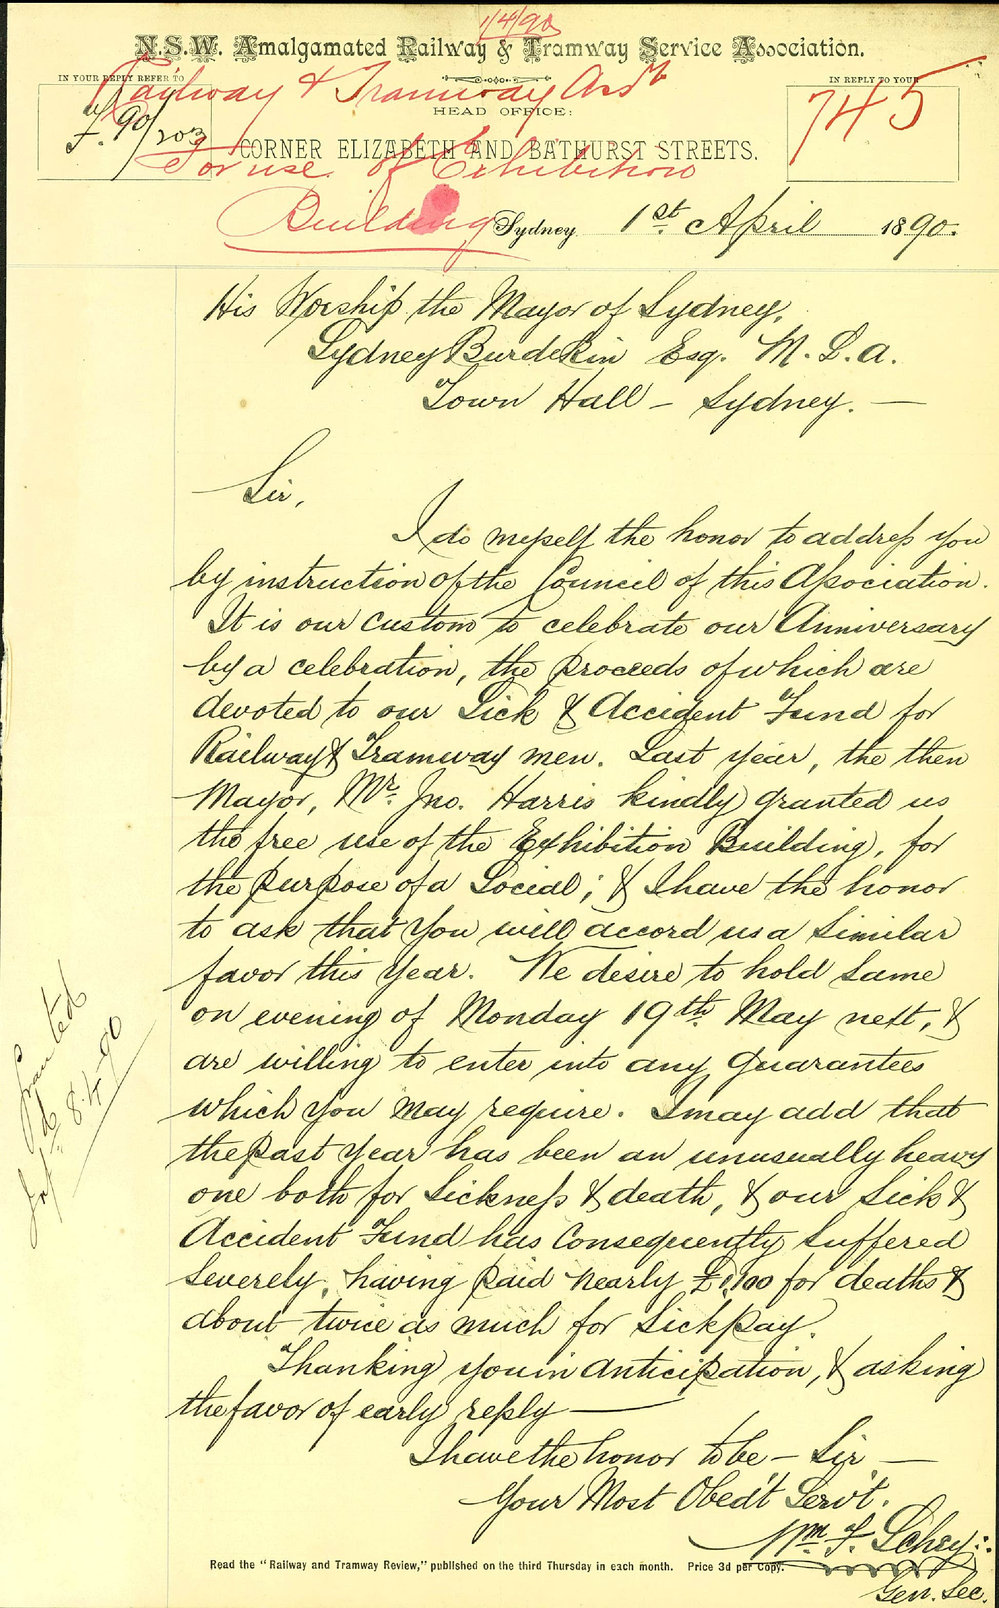 1/4/90
N.S.W. Amalgamated Railway & Tramway Service Association.
IN YOUR REPLY REFER TO
IN REPLY TO YOUR
Railway & Tramway Assn
HEAD OFFICE:
F. 90/203
745
CORNER ELIZABETH AND BATHURST STREETS.
For use of Exhibition
Building
Sydney 1st. April 1890.
His Worship the Mayor of Sydney,
Sydney Burdekin Esq. M.L.A.
Town Hall - Sydney. —
Sir,
I do myself the honor to address you
by instruction of the Council of this Association.
It is our custom to celebrate our Anniversary
by a celebration, the proceeds of which are
devoted to our Sick & Accident Fund for
Railway & Tramway men. Last year, the then
Mayor, Mr. Jno. Harris kindly granted us
the free use of the Exhibition Building, for
the purpose of a Social; & I have the honor
to ask that you will accord us a similar
favor this year. We desire to hold same
on evening of Monday 19th. May next, &
are willing to enter into any guarantees
which you may require. I may add that
the past year has been an unusually heavy
one both for sickness & death, & our Sick &
Accident Fund has consequently suffered
severely, having paid nearly £1,100 for deaths &
about twice as much for Sick Pay.
Thanking you in anticipation, & asking
the favor of early reply —
I have the honor to be - Sir —
Your Most Obed't Serv't.
Wm. F. Schey:.
Gen. Sec.
Granted
8.4.90
Read the "Railway and Tramway Review," published on the third Thursday in each month. Price 3d per Copy.